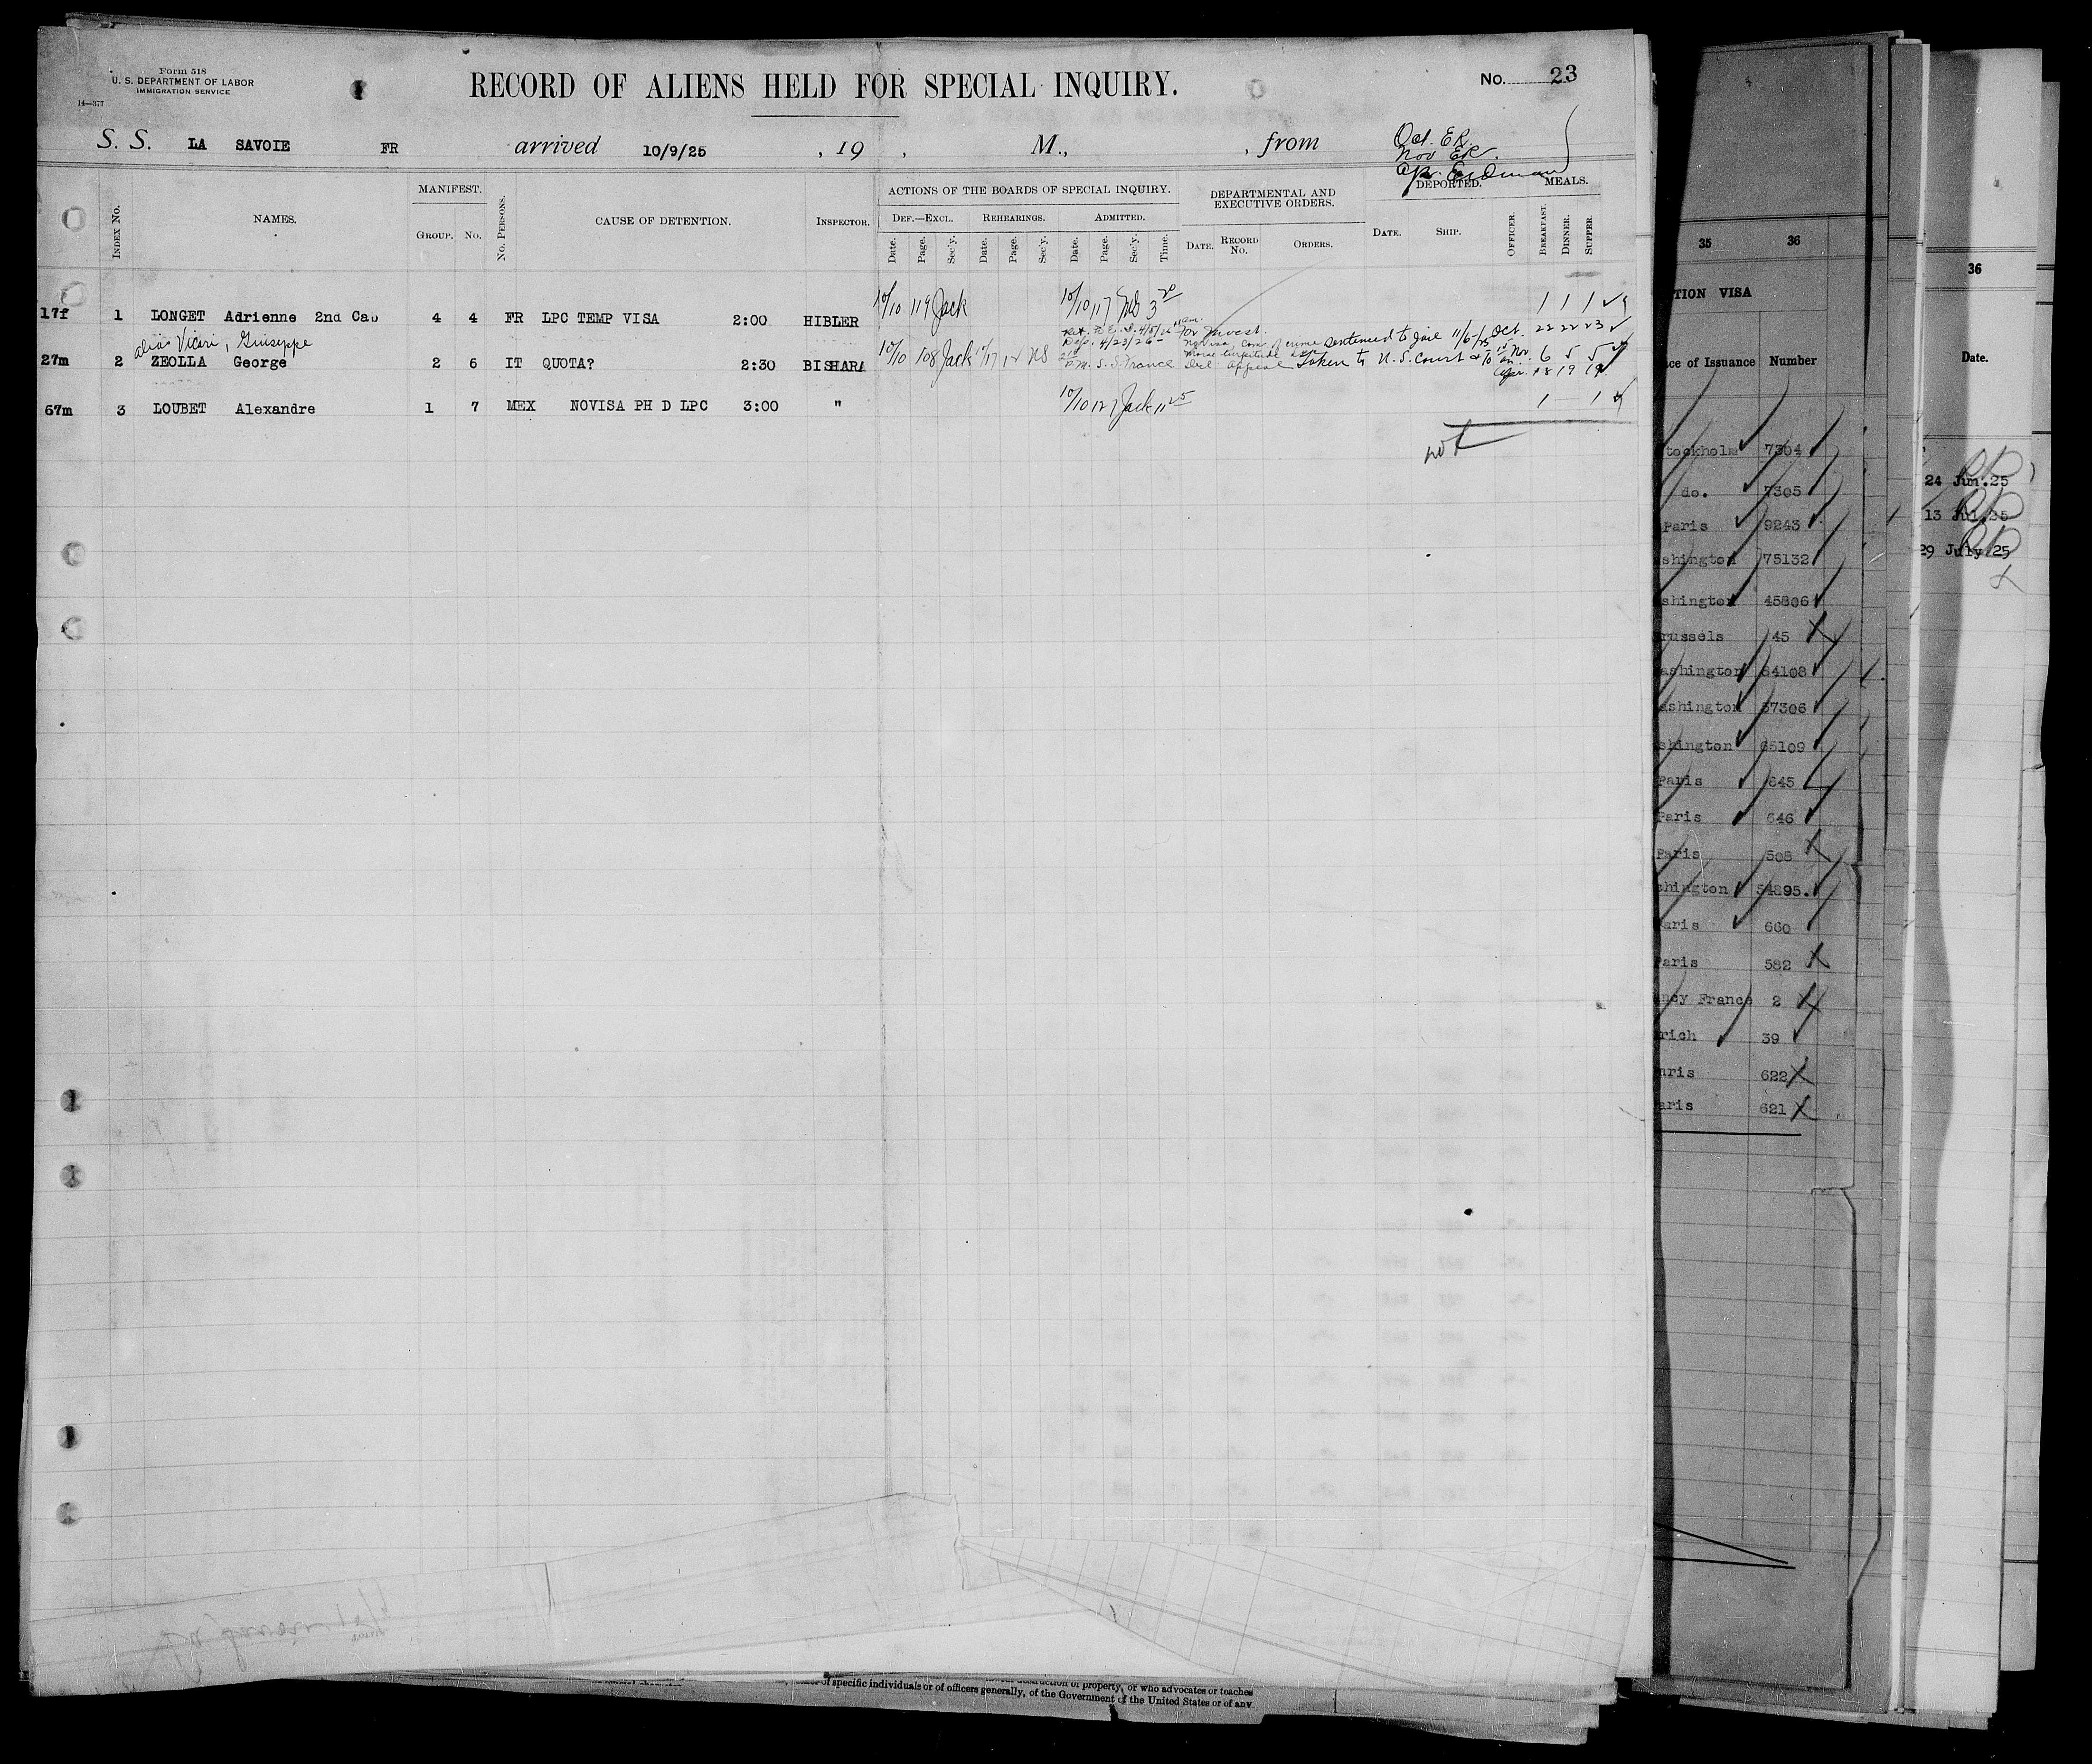 Form 518
U. S. DEPARTMENT OF LABOR
IMMIGRATION SERVICE
14—377
RECORD OF ALIENS HELD FOR SPECIAL INQUIRY.
No. 23
S. S. LA SAVOIE FR arrived 10/9/25 , 19 , M., , from
Oct. ER
Nov ER.
Apr. Erdman
INDEX No.
NAMES.
MANIFEST.
GROUP. No.
No. PERSONS.
CAUSE OF DETENTION.
INSPECTOR.
ACTIONS OF THE BOARDS OF SPECIAL INQUIRY.
DEF.—EXCL. REHEARINGS. ADMITTED.
Date. Page. Sec'y. Date. Page. Sec'y. Date. Page. Sec'y. Time.
DEPARTMENTAL AND EXECUTIVE ORDERS.
DATE. RECORD No. ORDERS.
DEPORTED.
DATE. SHIP. OFFICER.
MEALS.
BREAKFAST. DINNER. SUPPER.
17f 1 LONGET Adrienne 2nd Cab 4 4 FR LPC TEMP VISA 2:00 HIBLER 10/10 119 Jack 10/10 117 3 20 1 1 1
alias Vicari, Giuseppe
27m 2 ZEOLLA George 2 6 IT QUOTA? 2:30 BISHARA 10/10 108 Jack
Ret. to E. I. 4/8/26 11 am. for Invest.
Dep. 4/23/26
P.M. S. S. France
sentenced to jail 11/6/25
Taken to U. S. Court
Oct. 22 22 23
Nov. 6 5 5
Apr. 18 19 19
67m 3 LOUBET Alexandre 1 7 MEX NOVISA PH D LPC 3:00 " 10/10 127 Jack 11 25 1 — 1
35 36
TION VISA
ce of Issuance Number
tockholm 7304
do. 7305
Paris 9243
shington 75132
shington 45806
russels 45
ashington 84108
ashington 57306
shington 65109
Paris 645
Paris 646
Paris 508
shington 54895.
aris 660
Paris 582
ncy France 2
rich 39
aris 622
aris 621
36
Date.
24 Jun.25
13 Jul.25
29 July.25
of property, or who advocates or teaches
of specific individuals or of officers generally, of the Government of the United States or of any